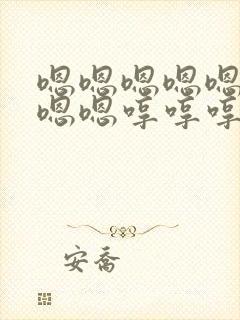 嗯嗯嗯嗯嗯
嗯嗯哼哼哼
安乔